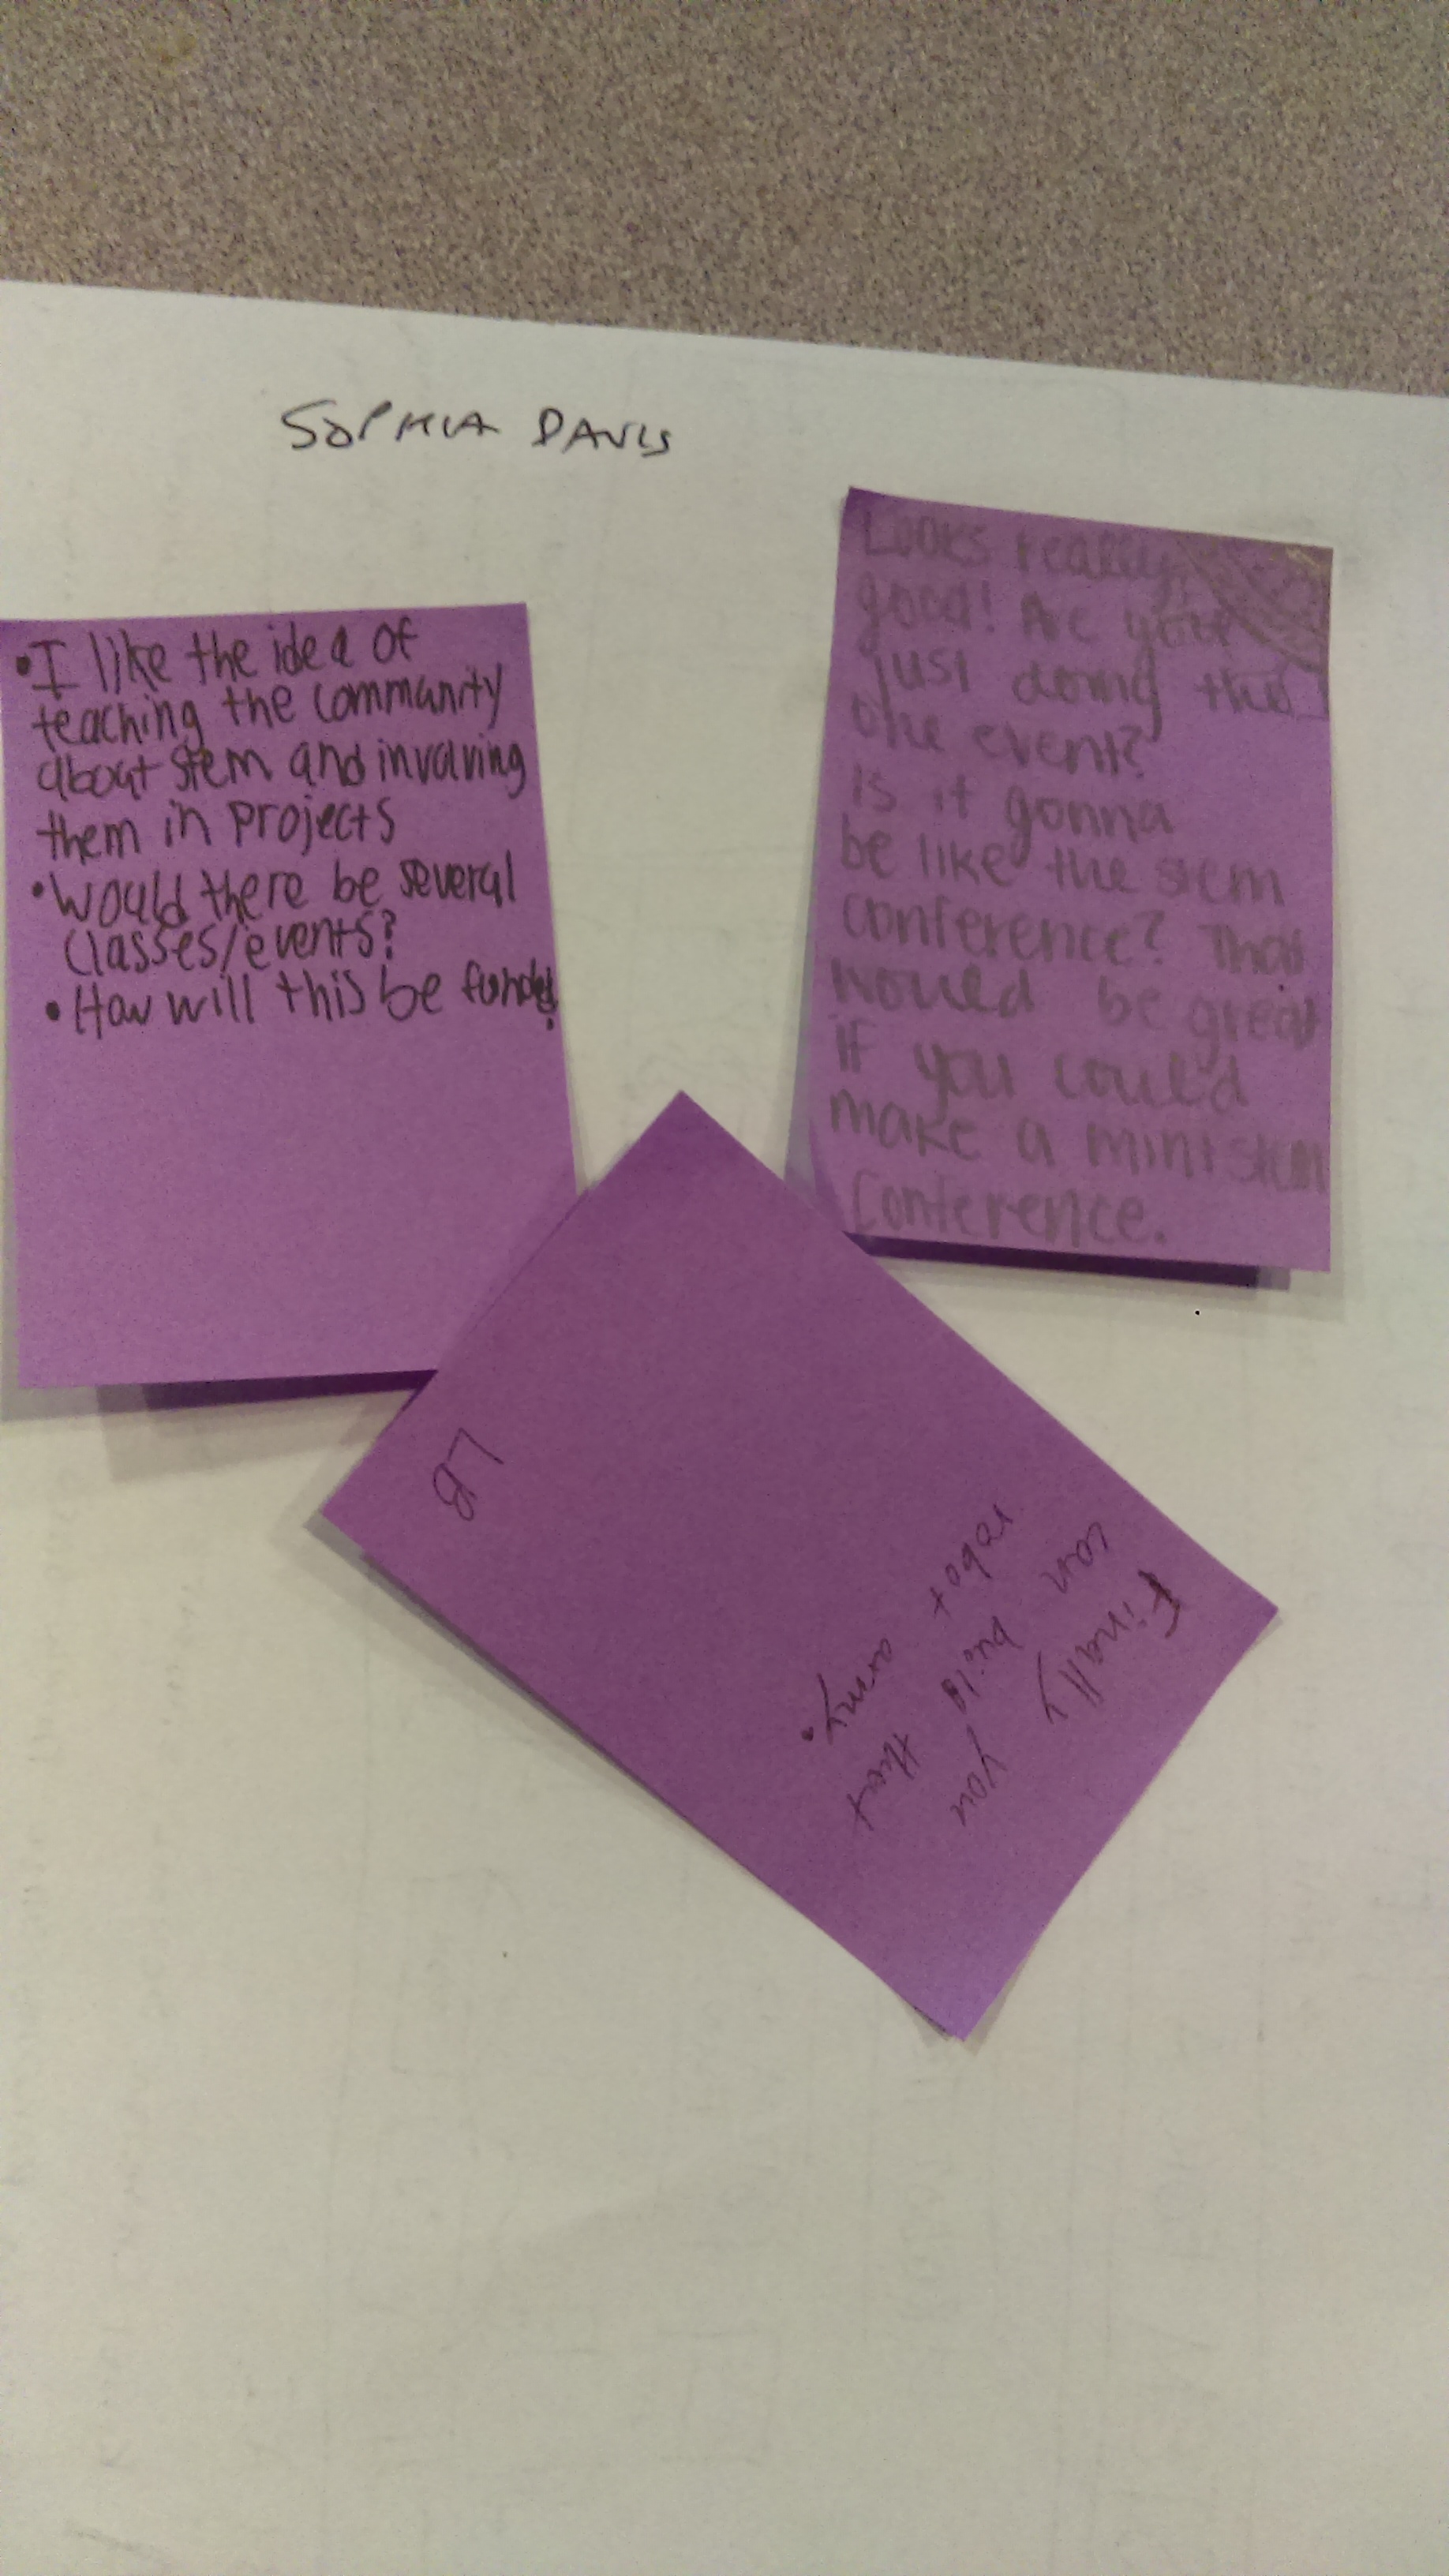 SOPHIA DAVIS
• I like the idea of
teaching the community
about stem and involving
them in projects
• Would there be several
classes/events?
• How will this be funded?
Looks really
good! Are you
just doing the
one event?
Is it gonna
be like the stem
conference? That
would be great
if you could
make a mini stem
conference.
Finally you
can build that
robot army.
LB